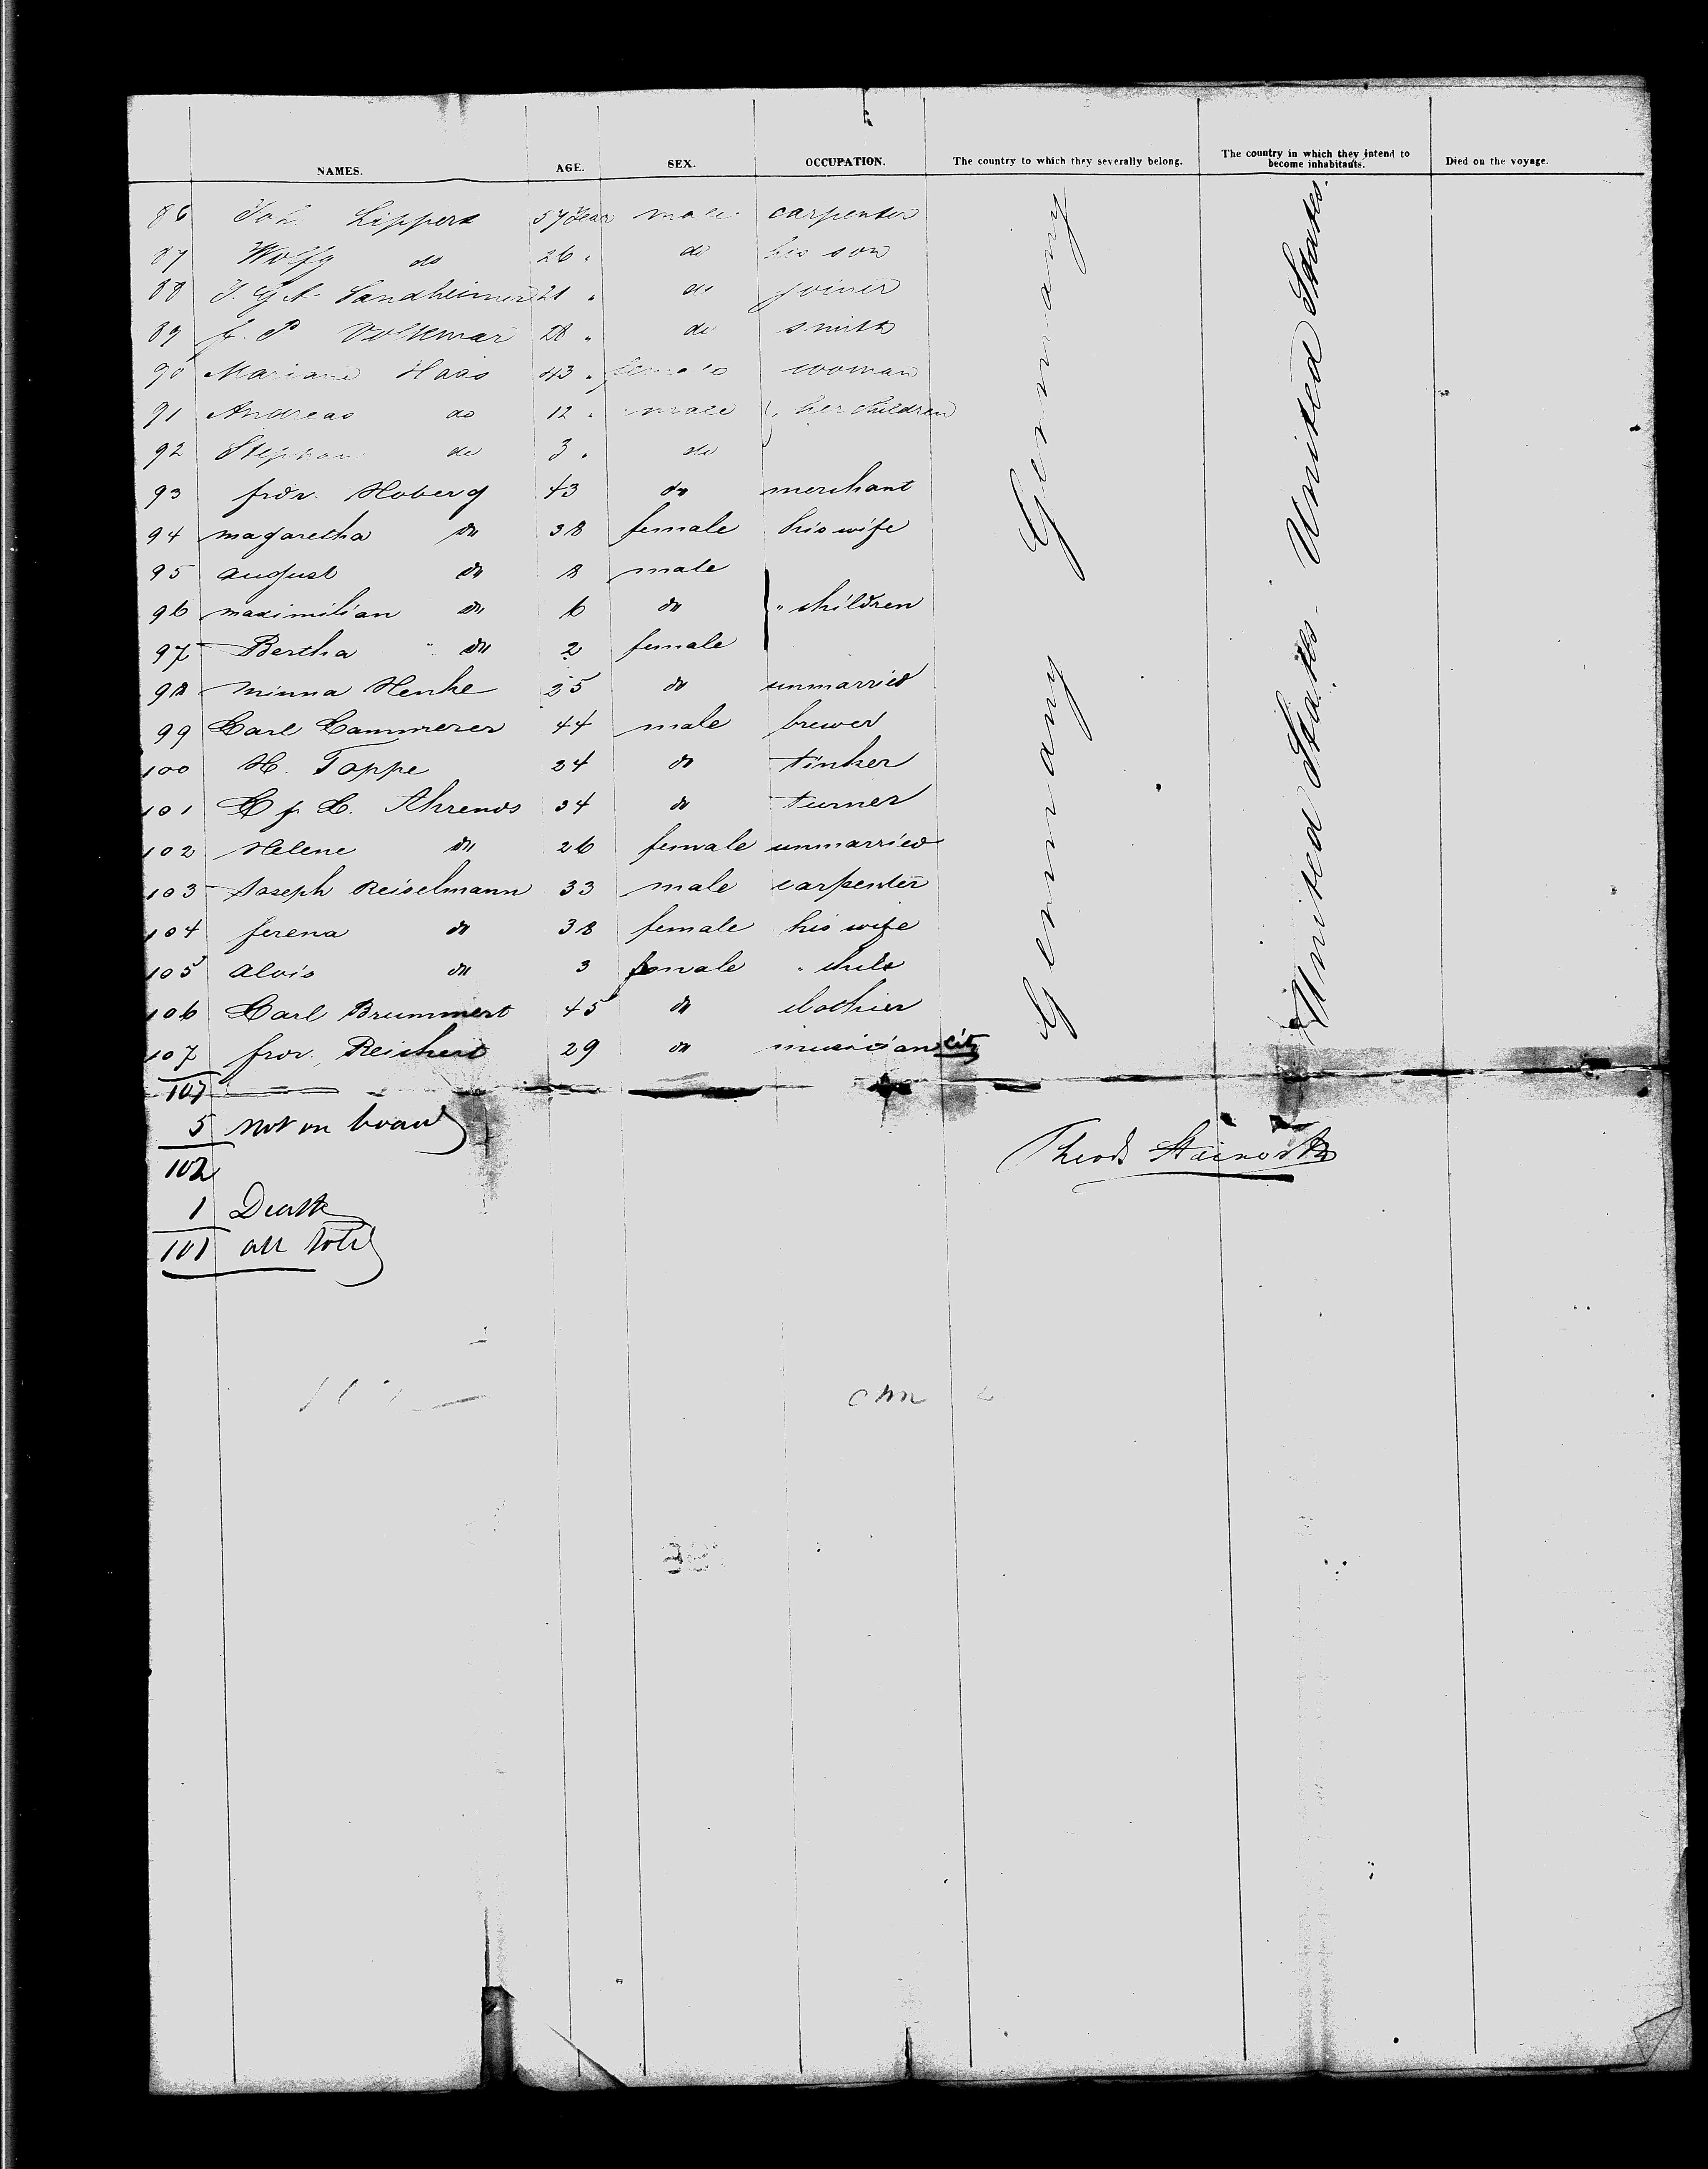 NAMES. AGE. SEX. OCCUPATION. The country to which they severally belong. The country in which they intend to become inhabitants. Died on the voyage.
86 Joh. Lippert 57 Year male carpenter
87 Wolfg do 26 " do his son
88 J. G. A. Sandheimer 21 " do joiner
89 J. P Volkmar 28 " do smith
90 Mariane Haas 43 " female woman
91 Andreas do 12 " male } her children
92 Stephan do 3 " do
93 fridr. Hoberg 43 do merchant
94 magaretha do 38 female his wife
95 august do 8 male
96 maximilian do 6 do } " children
97 Bertha do 2 female
98 Minna Henke 25 do unmarried
99 Carl Cammerer 44 male brewer
100 H. Toppe 24 do tinker
101 C f. C. Ahrends 34 do turner
102 Helene do 26 female unmarried
103 Joseph Reiselmann 33 male carpenter
104 ferena do 38 female his wife
105 alois do 3 female " child
106 Carl Brummert 45 do clothier
107 fror. Reichert 29 do musician cit
Germany Germany
United States. United States.
107
5 not on board
102
1 Death
101 all told
Theod.